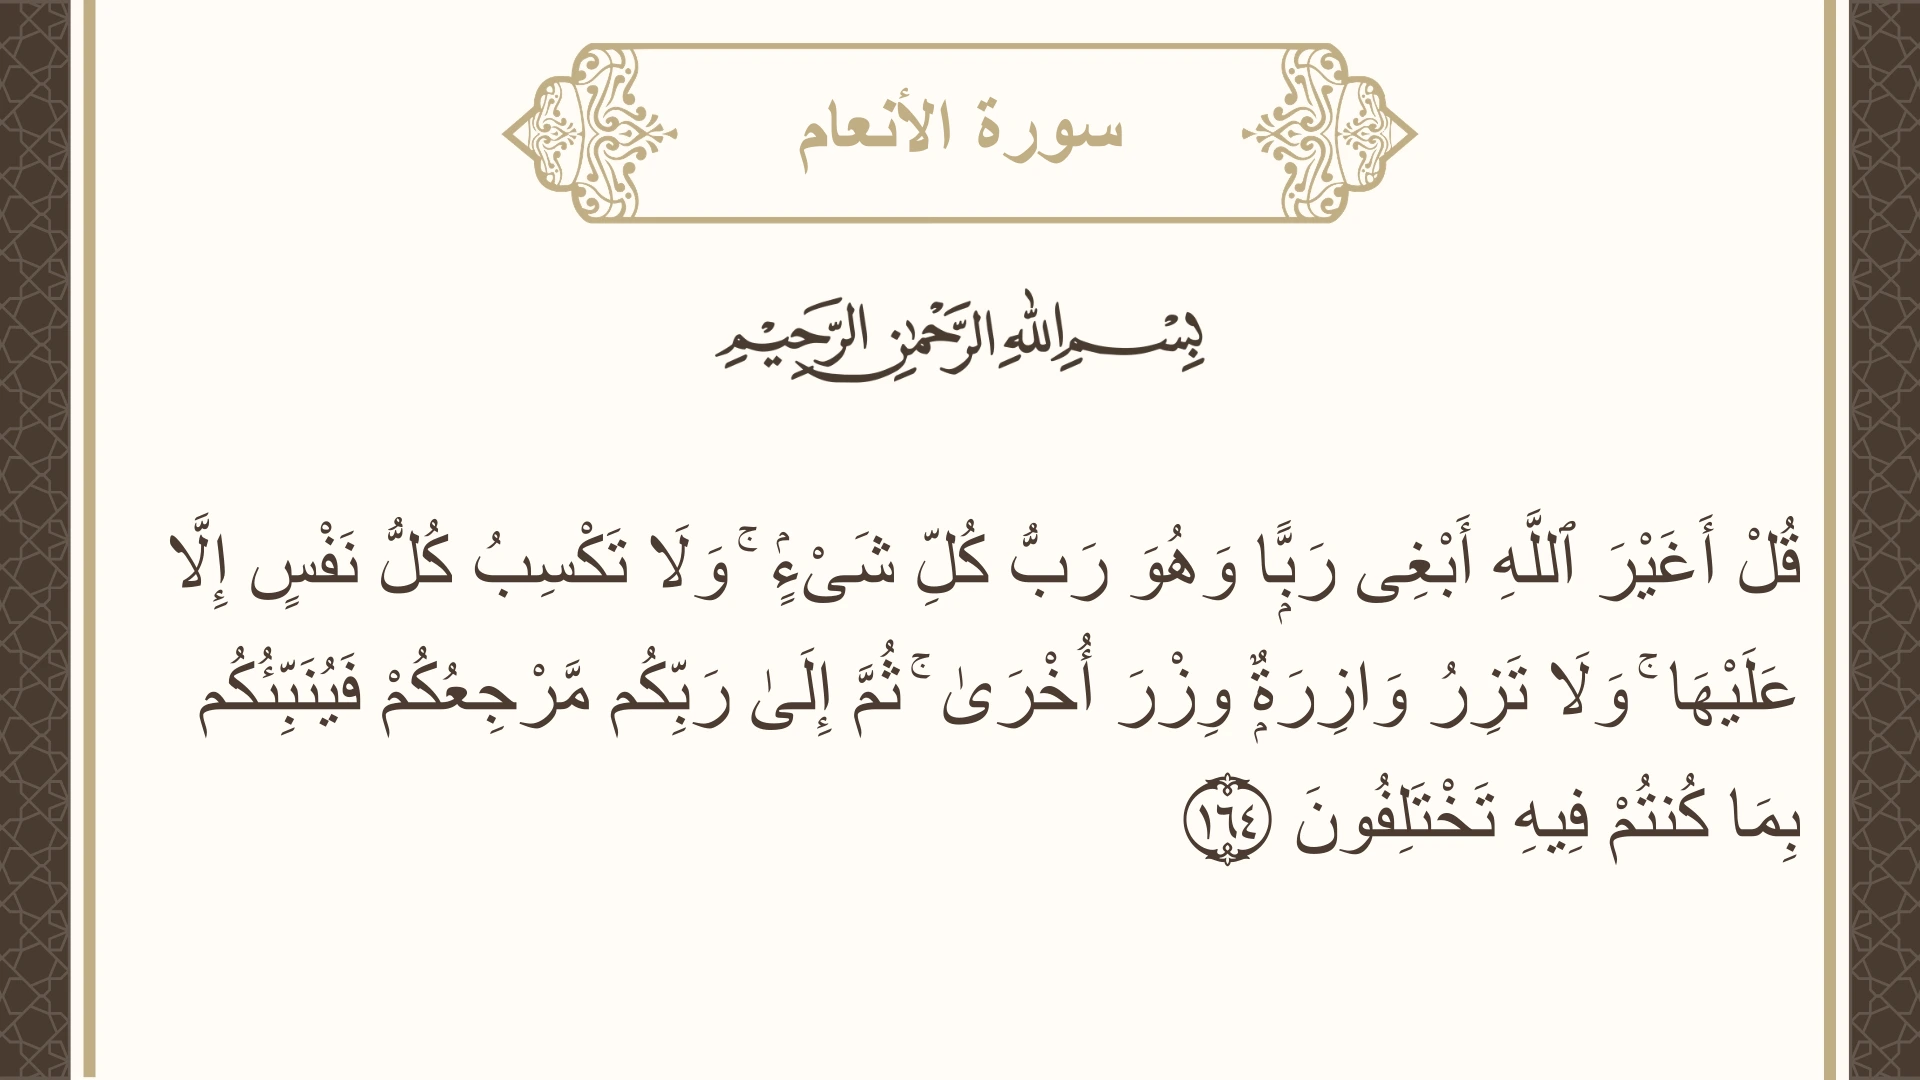 سورة الأنعام
بِسْمِ اللهِ الرَّحْمٰنِ الرَّحِيْمِ
قُلْ أَغَيْرَ ٱللَّهِ أَبْغِى رَبًّۭا وَهُوَ رَبُّ كُلِّ شَىْءٍۢ ۚ وَلَا تَكْسِبُ كُلُّ نَفْسٍ إِلَّا
عَلَيْهَا ۚ وَلَا تَزِرُ وَازِرَةٌۭ وِزْرَ أُخْرَىٰ ۚ ثُمَّ إِلَىٰ رَبِّكُم مَّرْجِعُكُمْ فَيُنَبِّئُكُم
بِمَا كُنتُمْ فِيهِ تَخْتَلِفُونَ ١٦٤